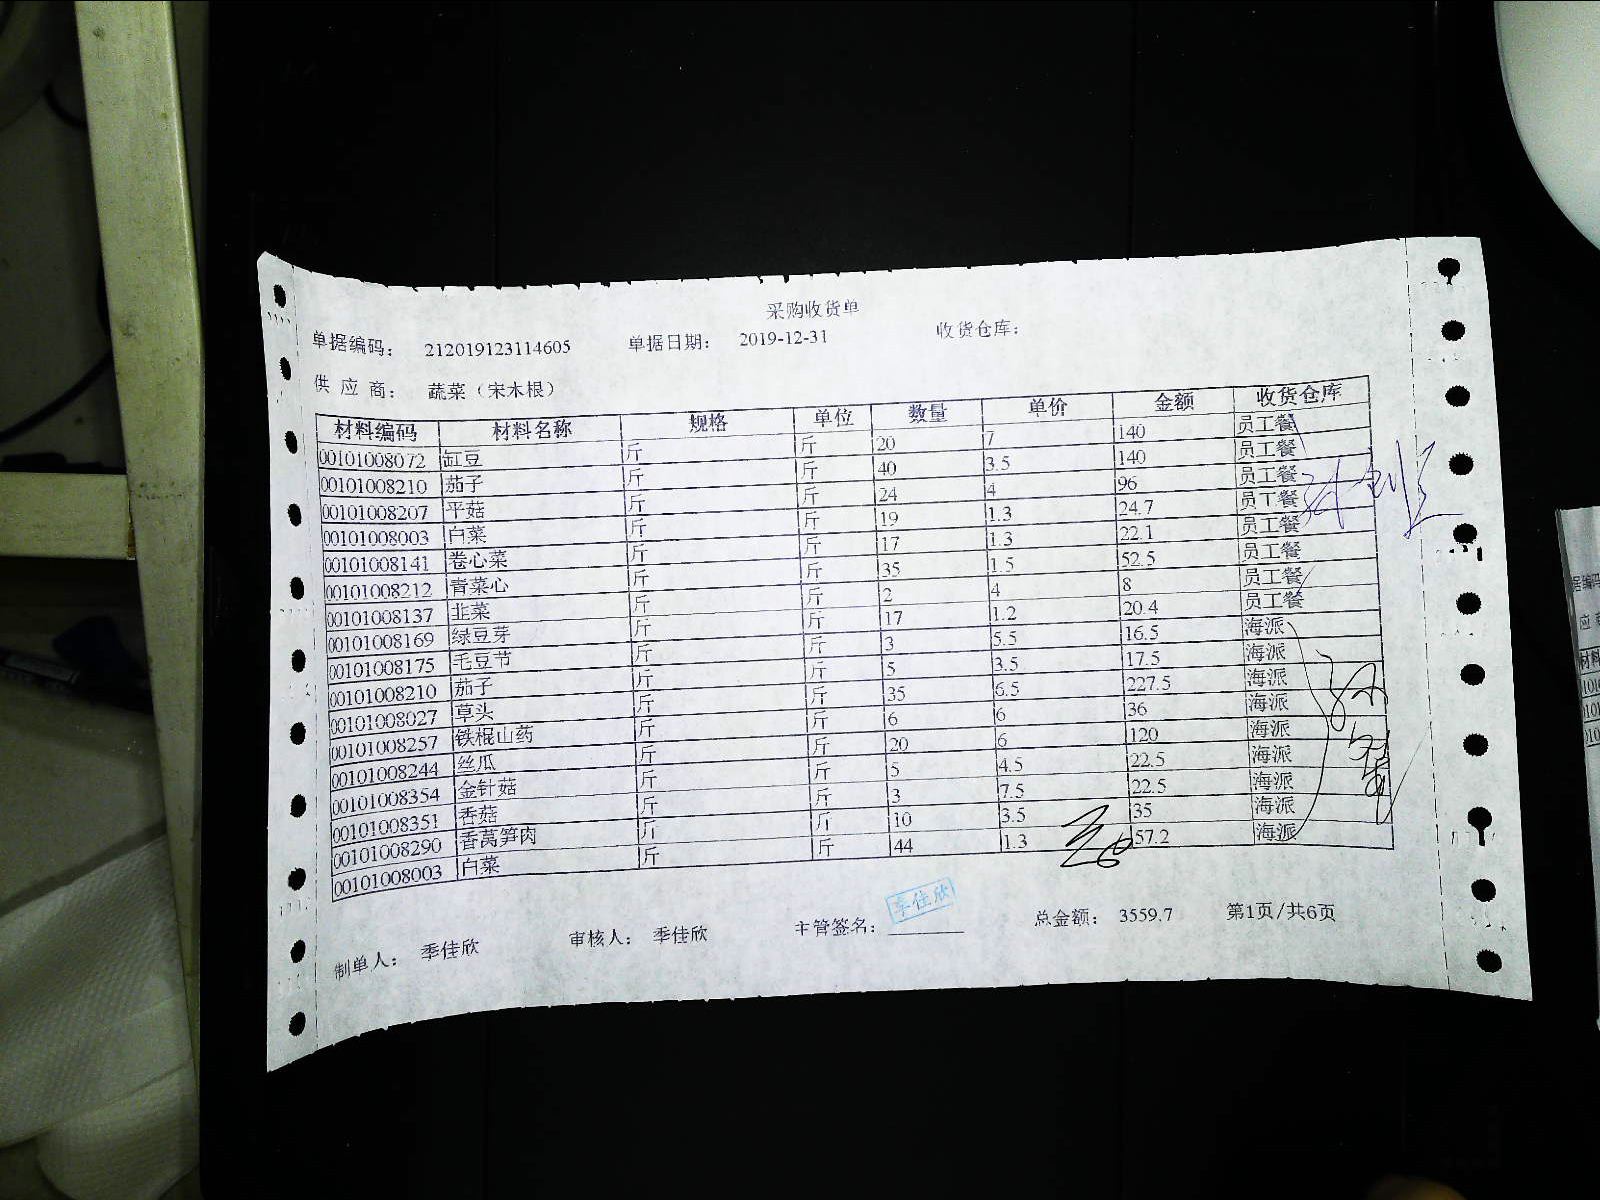 采购收货单
单据编码： 212019123114605 单据日期： 2019-12-31 收货仓库：
供 应 商： 蔬菜（宋木根）
材料编码 材料名称 规格 单位 数量 单价 金额 收货仓库
00101008072 缸豆 斤 斤 20 7 140 员工餐
00101008210 茄子 斤 斤 40 3.5 140 员工餐
00101008207 平菇 斤 斤 24 4 96 员工餐
00101008003 白菜 斤 斤 19 1.3 24.7 员工餐
00101008141 卷心菜 斤 斤 17 1.3 22.1 员工餐
00101008212 青菜心 斤 斤 35 1.5 52.5 员工餐
00101008137 韭菜 斤 斤 2 4 8 员工餐
00101008169 绿豆芽 斤 斤 17 1.2 20.4 员工餐
00101008175 毛豆节 斤 斤 3 5.5 16.5 海派
00101008210 茄子 斤 斤 5 3.5 17.5 海派
00101008027 草头 斤 斤 35 6.5 227.5 海派
00101008257 铁棍山药 斤 斤 6 6 36 海派
00101008244 丝瓜 斤 斤 20 6 120 海派
00101008354 金针菇 斤 斤 5 4.5 22.5 海派
00101008351 香菇 斤 斤 3 7.5 22.5 海派
00101008290 香莴笋肉 斤 斤 10 3.5 35 海派
00101008003 白菜 斤 斤 44 1.3 57.2 海派
制单人： 季佳欣 审核人： 季佳欣 主管签名： 季佳欣 总金额： 3559.7 第1页/共6页